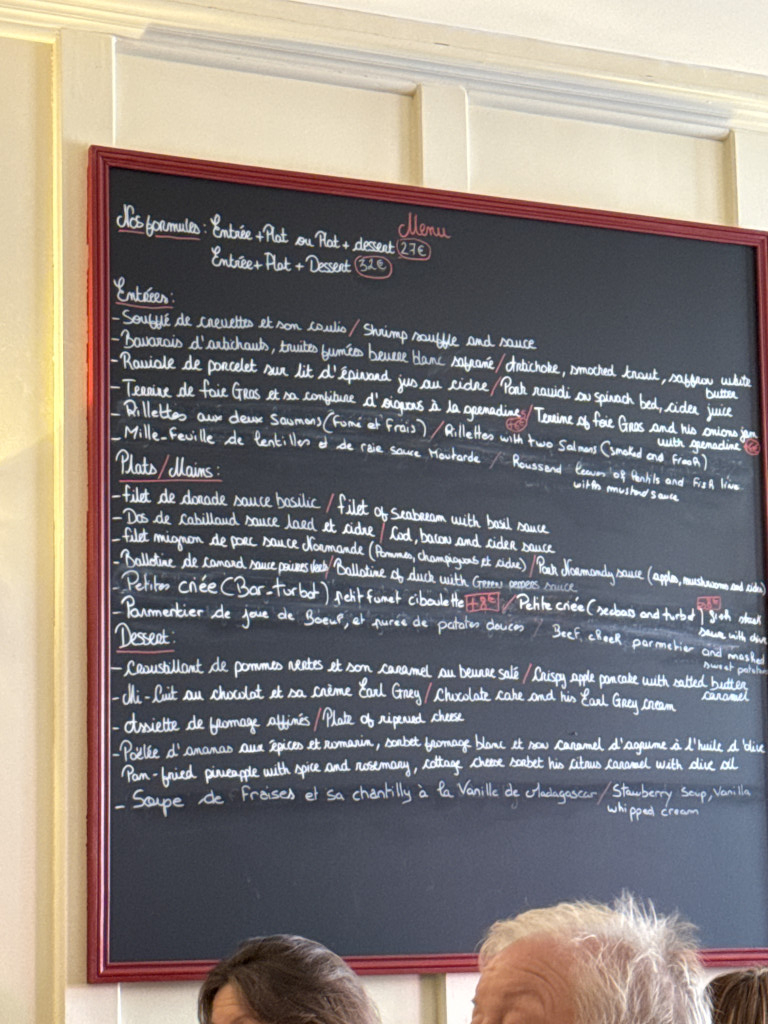 Menu
Nos formules: Entrée + Plat ou Plat + dessert 27€
Entrée + Plat + Dessert 32€
Entrées:
- Soufflé de crevettes et son coulis / Shrimp souffle and sauce
- Bavarois d'artichauts, truites fumées beurre blanc safrané / Artichoke, smocked traut, saffron white butter
- Raviole de porcelet sur lit d'épinard jus au cidre / Pork raviodi ou spinach bed, cider juice
- Terrine de foie Gras et sa confiture d'oignons à la grenadine / Terrine of foie Gras and his onions jam with grenadine
- Rillettes aux deux Saumons (Fumé et Frais) / Rillettes with two Salmons (smoked and Fresh)
- Mille-Feuille de lentilles et de raie sauce Moutarde / leaves of lentils and Fish with mustard sauce
Plats / Mains:
- filet de dorade sauce basilic / filet of Seabream with basil sauce
- Dos de cabillaud sauce lard et cidre / Cod, bacon and cider sauce
- filet mignon de porc sauce Normande (Pommes, champignons et cidre) / Pork Normandy sauce (apples, mushrooms and cidre)
- Ballotine de canard sauce poivres verts / Ballotine of duck with Green pepers sauce
- Petites criée (Bar-turbot) petit fumet ciboulette +8€ / Petite criée (seabass and turbot) fish stock sauce with chive
- Parmentier de joue de Boeuf, et purée de patates douces / Beef cheek parmetier and mashed sweet potatoes
Dessert:
- Croustillant de pommes vertes et son caramel au beurre salé / Crispy apple pancake with salted butter caramel
- Mi-Cuit au chocolat et sa crème Earl Grey / Chocolate cake and his Earl Grey cream
- Assiette de fromage affinés / Plate of ripened cheese
- Poêlée d'ananas aux épices et romarin, sorbet fromage blanc et son caramel d'agrume à l'huile d'olive
Pan-fried pineapple with spice and rosemary, cottage cheese sorbet his citrus caramel with olive oil
- Soupe de Fraises et sa chantilly à la Vanille de Madagascar / Stawberry Soup, Vanilla whipped cream